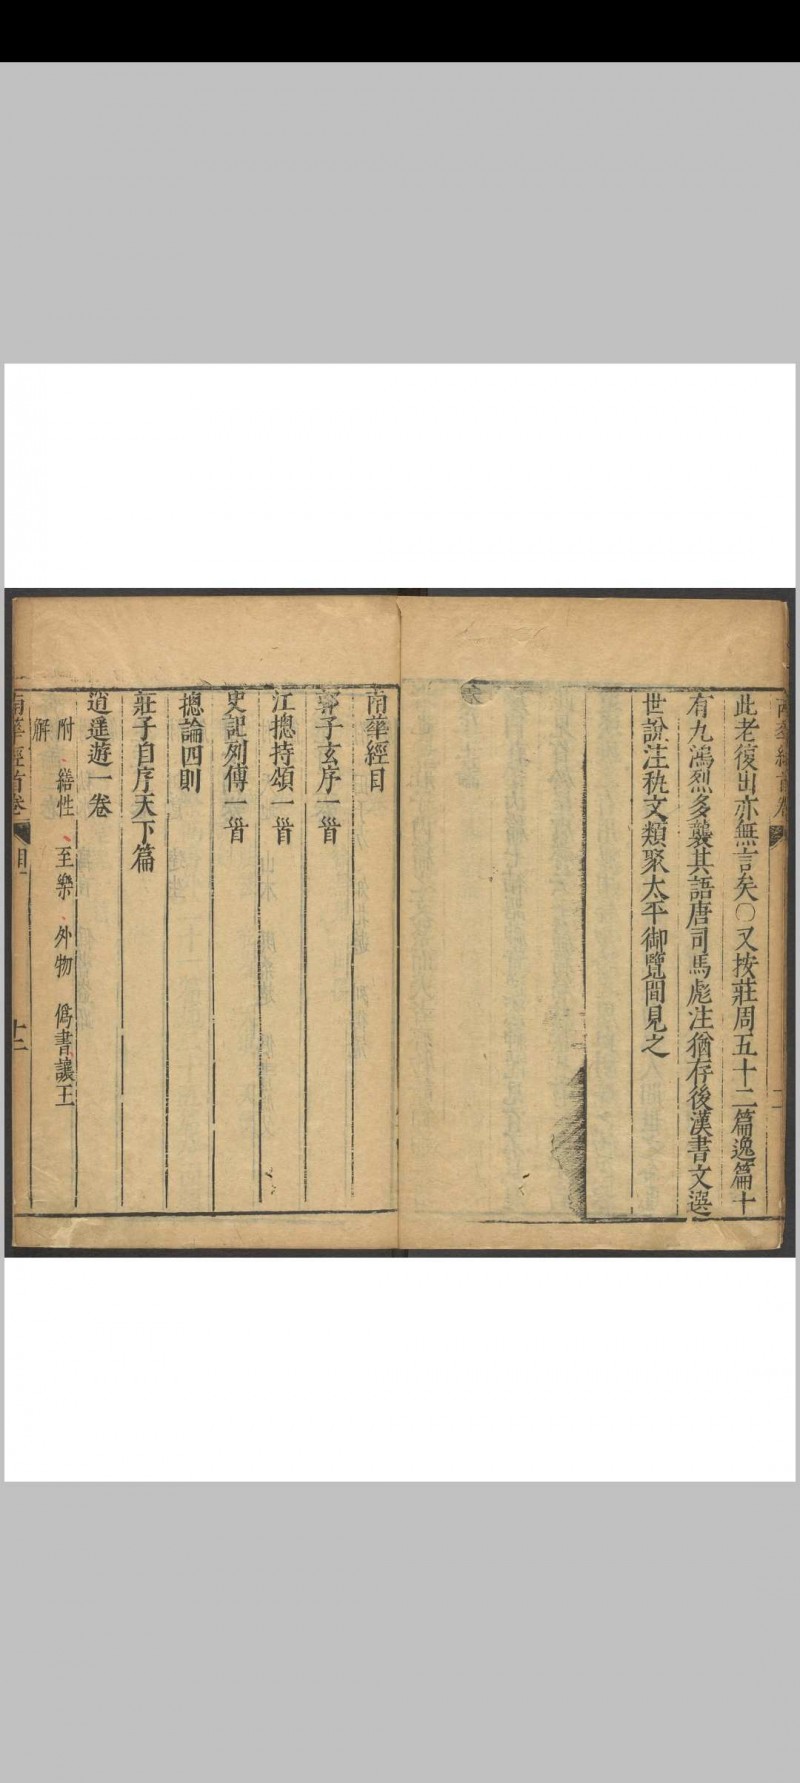 南華經首卷
二
此老復出亦無言矣○又按莊周五十二篇逸篇十
有九鴻烈多襲其語唐司馬彪注猶存後漢書文選
世說注秇文類聚太平御覽間見之
南華經目
郭子玄序一首
江摠持頌一首
史記列傳一首
摠論四則
莊子自序天下篇
逍遙遊一卷
附 繕性 至樂 外物 僞書讓王
解
南華經首卷
目一
十二